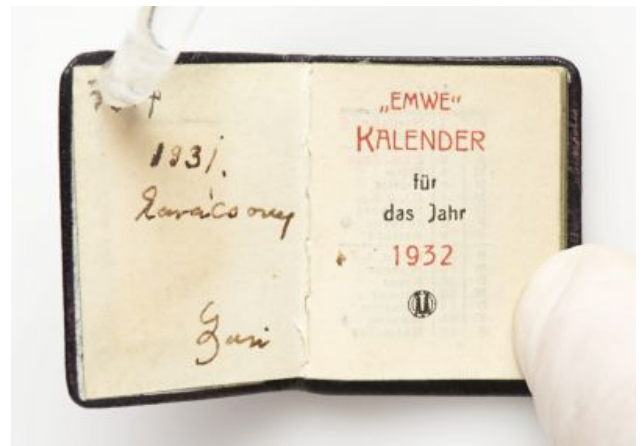 1931.
Karácsony
Zsuzsi
„EMWE“
KALENDER
für
das Jahr
1932